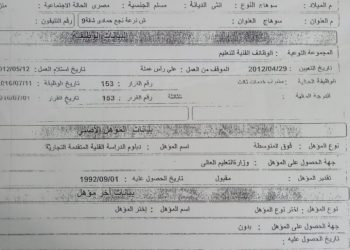 م الميلاد : سوهاج النوع : انثى الديانة : مسلم الجنسية : مصرى الحالة الاجتماعية :
العنوان : سوهاج العنوان : ش ترعة نجع حمادى شقة9 رقم التليفون
بيانات الوظيفة
المجموعة النوعية : الوظائف الفنية للتعليم
تاريخ التعيين : 2012/04/29 الموقف من العمل : على رأس عملة تاريخ استلام العمل : 2012/05/12
الوظيفة الحالية : خدمات ثالث رقم القرار : 153 تاريخ الوظيفة : 2016/07/01
الدرجة المالية : ثالثة رقم القرار : 153 تاريخ الدرجة : 2016/07/01
بيانات المؤهل الأصلي
نوع المؤهل : فوق المتوسطة اسم المؤهل : دبلوم الدراسة الفنية المتقدمة التجارية
جهة الحصول على المؤهل : وزارة التعليم العالى
تقدير المؤهل : مقبول تاريخ الحصول عليه : 1992/09/01
بيانات آخر مؤهل
نوع المؤهل : اختر نوع المؤهل اسم المؤهل : اختر اسم المؤهل
جهة الحصول على المؤهل : بدون
تاريخ الحصول عليه :